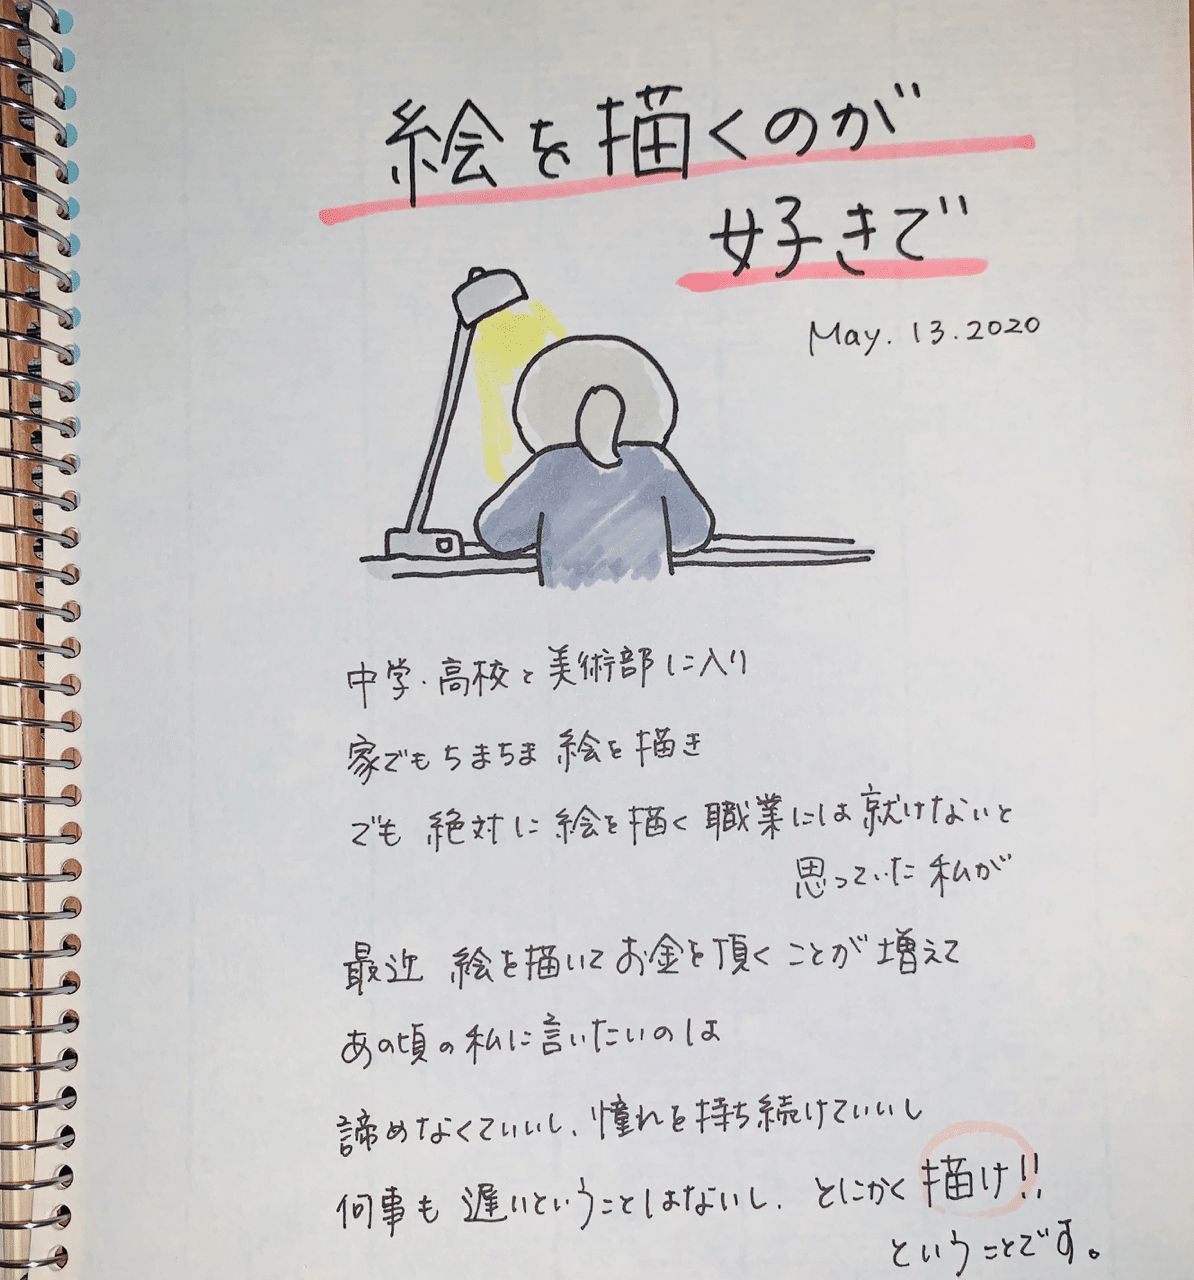 絵を描くのが
好きで
May.13.2020
中学・高校と美術部に入り
家でもちまちま絵を描き
でも絶対に絵を描く職業には就けないと
思っていた私が
最近 絵を描いてお金を頂くことが増えて
あの頃の私に言いたいのは
諦めなくていいし、憧れを持ち続けていいし
何事も遅いということはないし、とにかく描け!!
ということです。